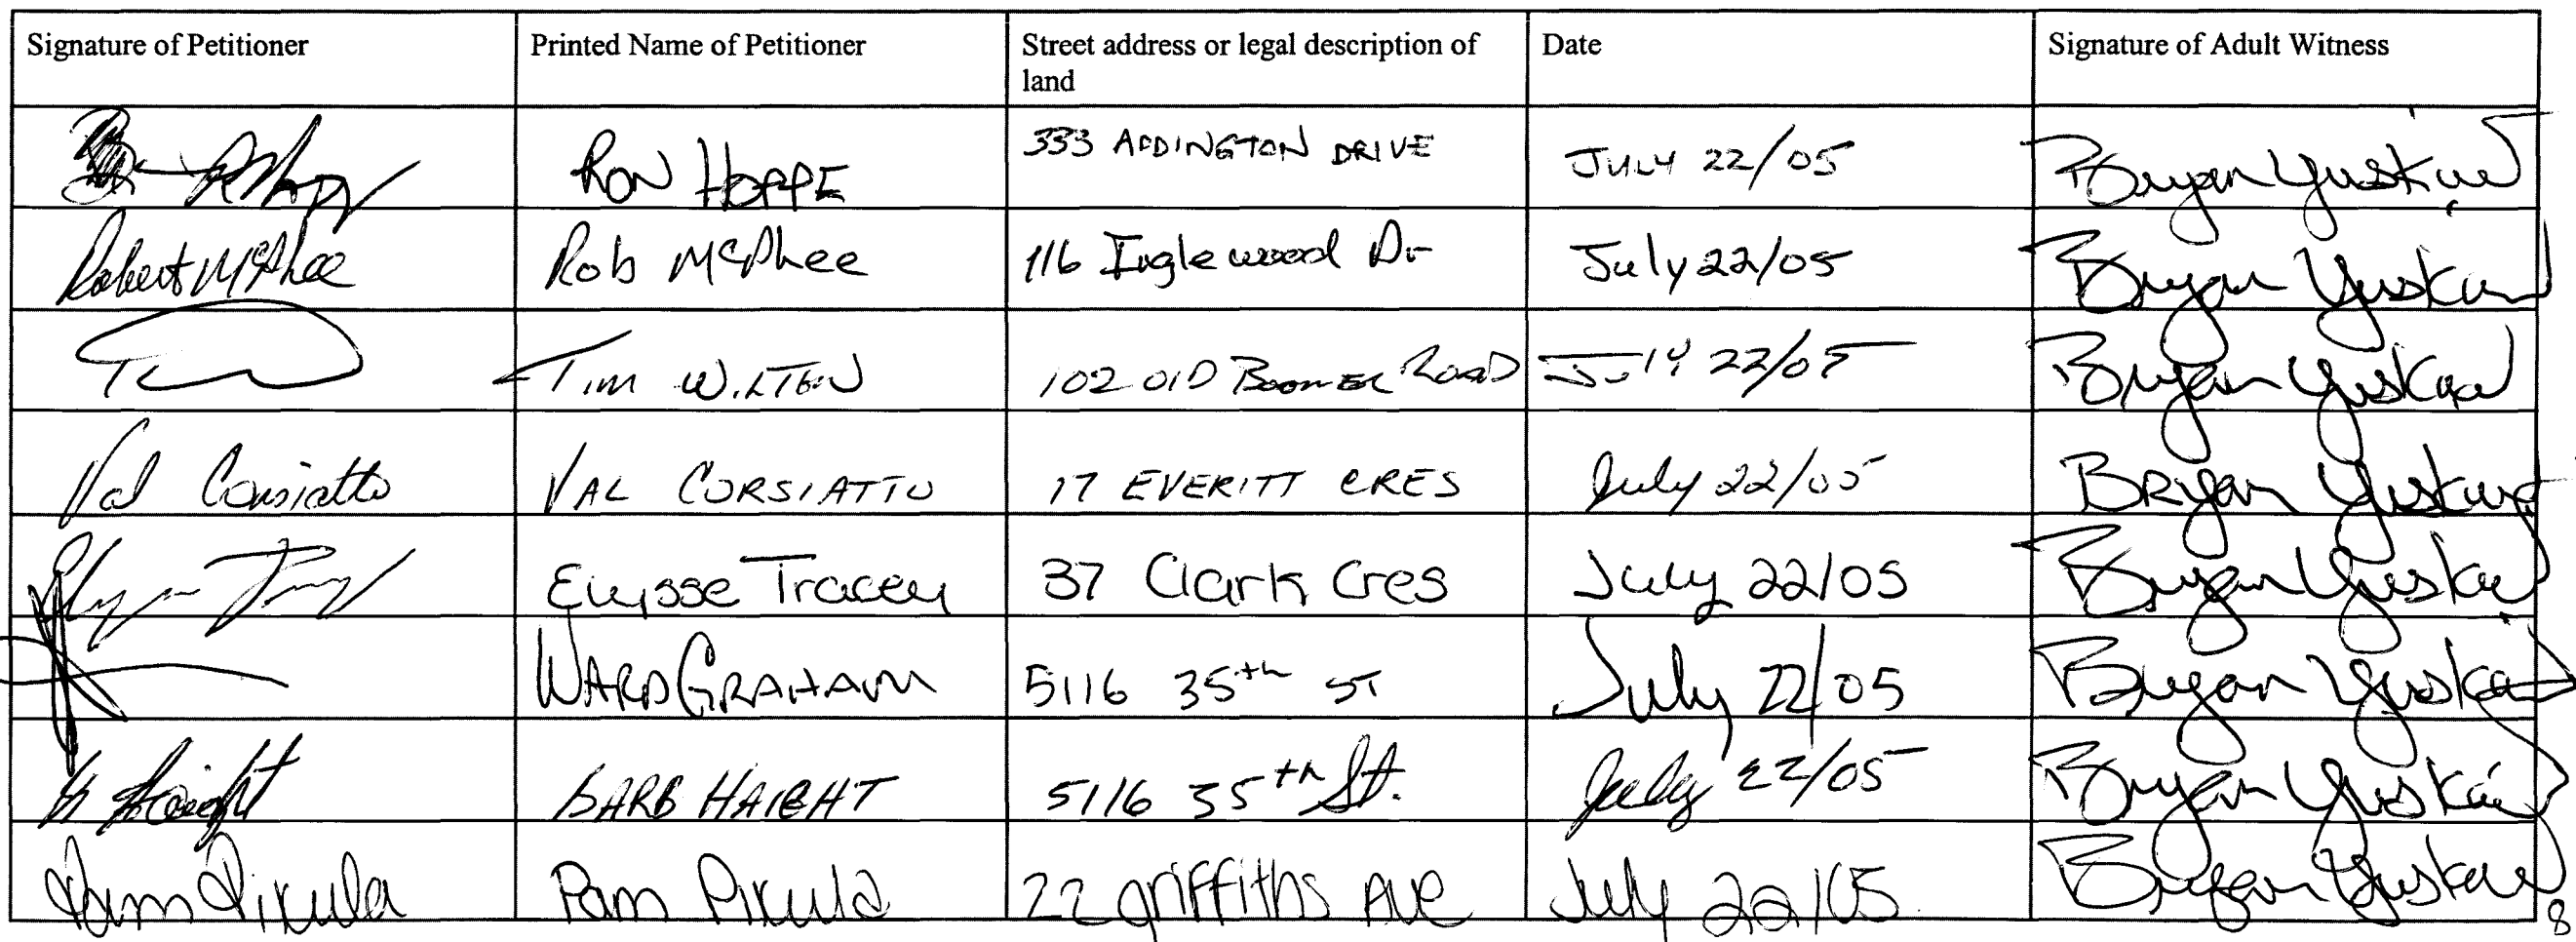 Signature of Petitioner Printed Name of Petitioner Street address or legal description of land Date Signature of Adult Witness
RON HOPPE 333 ADDINGTON DRIVE JULY 22/05 Bryan Yuskiw
Robert McPhee Rob McPhee 116 Inglewood Dr July 22/05 Bryan Yuskiw
TIM WILTON 102 OLD BOOMER ROAD July 22/05 Bryan Yuskiw
Val Corsiatto VAL CORSIATTO 17 EVERITT CRES July 22/05 Bryan Yuskiw
Elysse Tracey 37 Clark Cres July 22/05 Bryan Yuskiw
WARD GRAHAM 5116 35th ST July 22/05 Bryan Yuskiw
B Haight BARB HAIGHT 5116 35th St. July 22/05 Bryan Yuskiw
Pam Pikula Pam Pikula 22 griffiths Ave July 22/05 Bryan Yuskiw
8